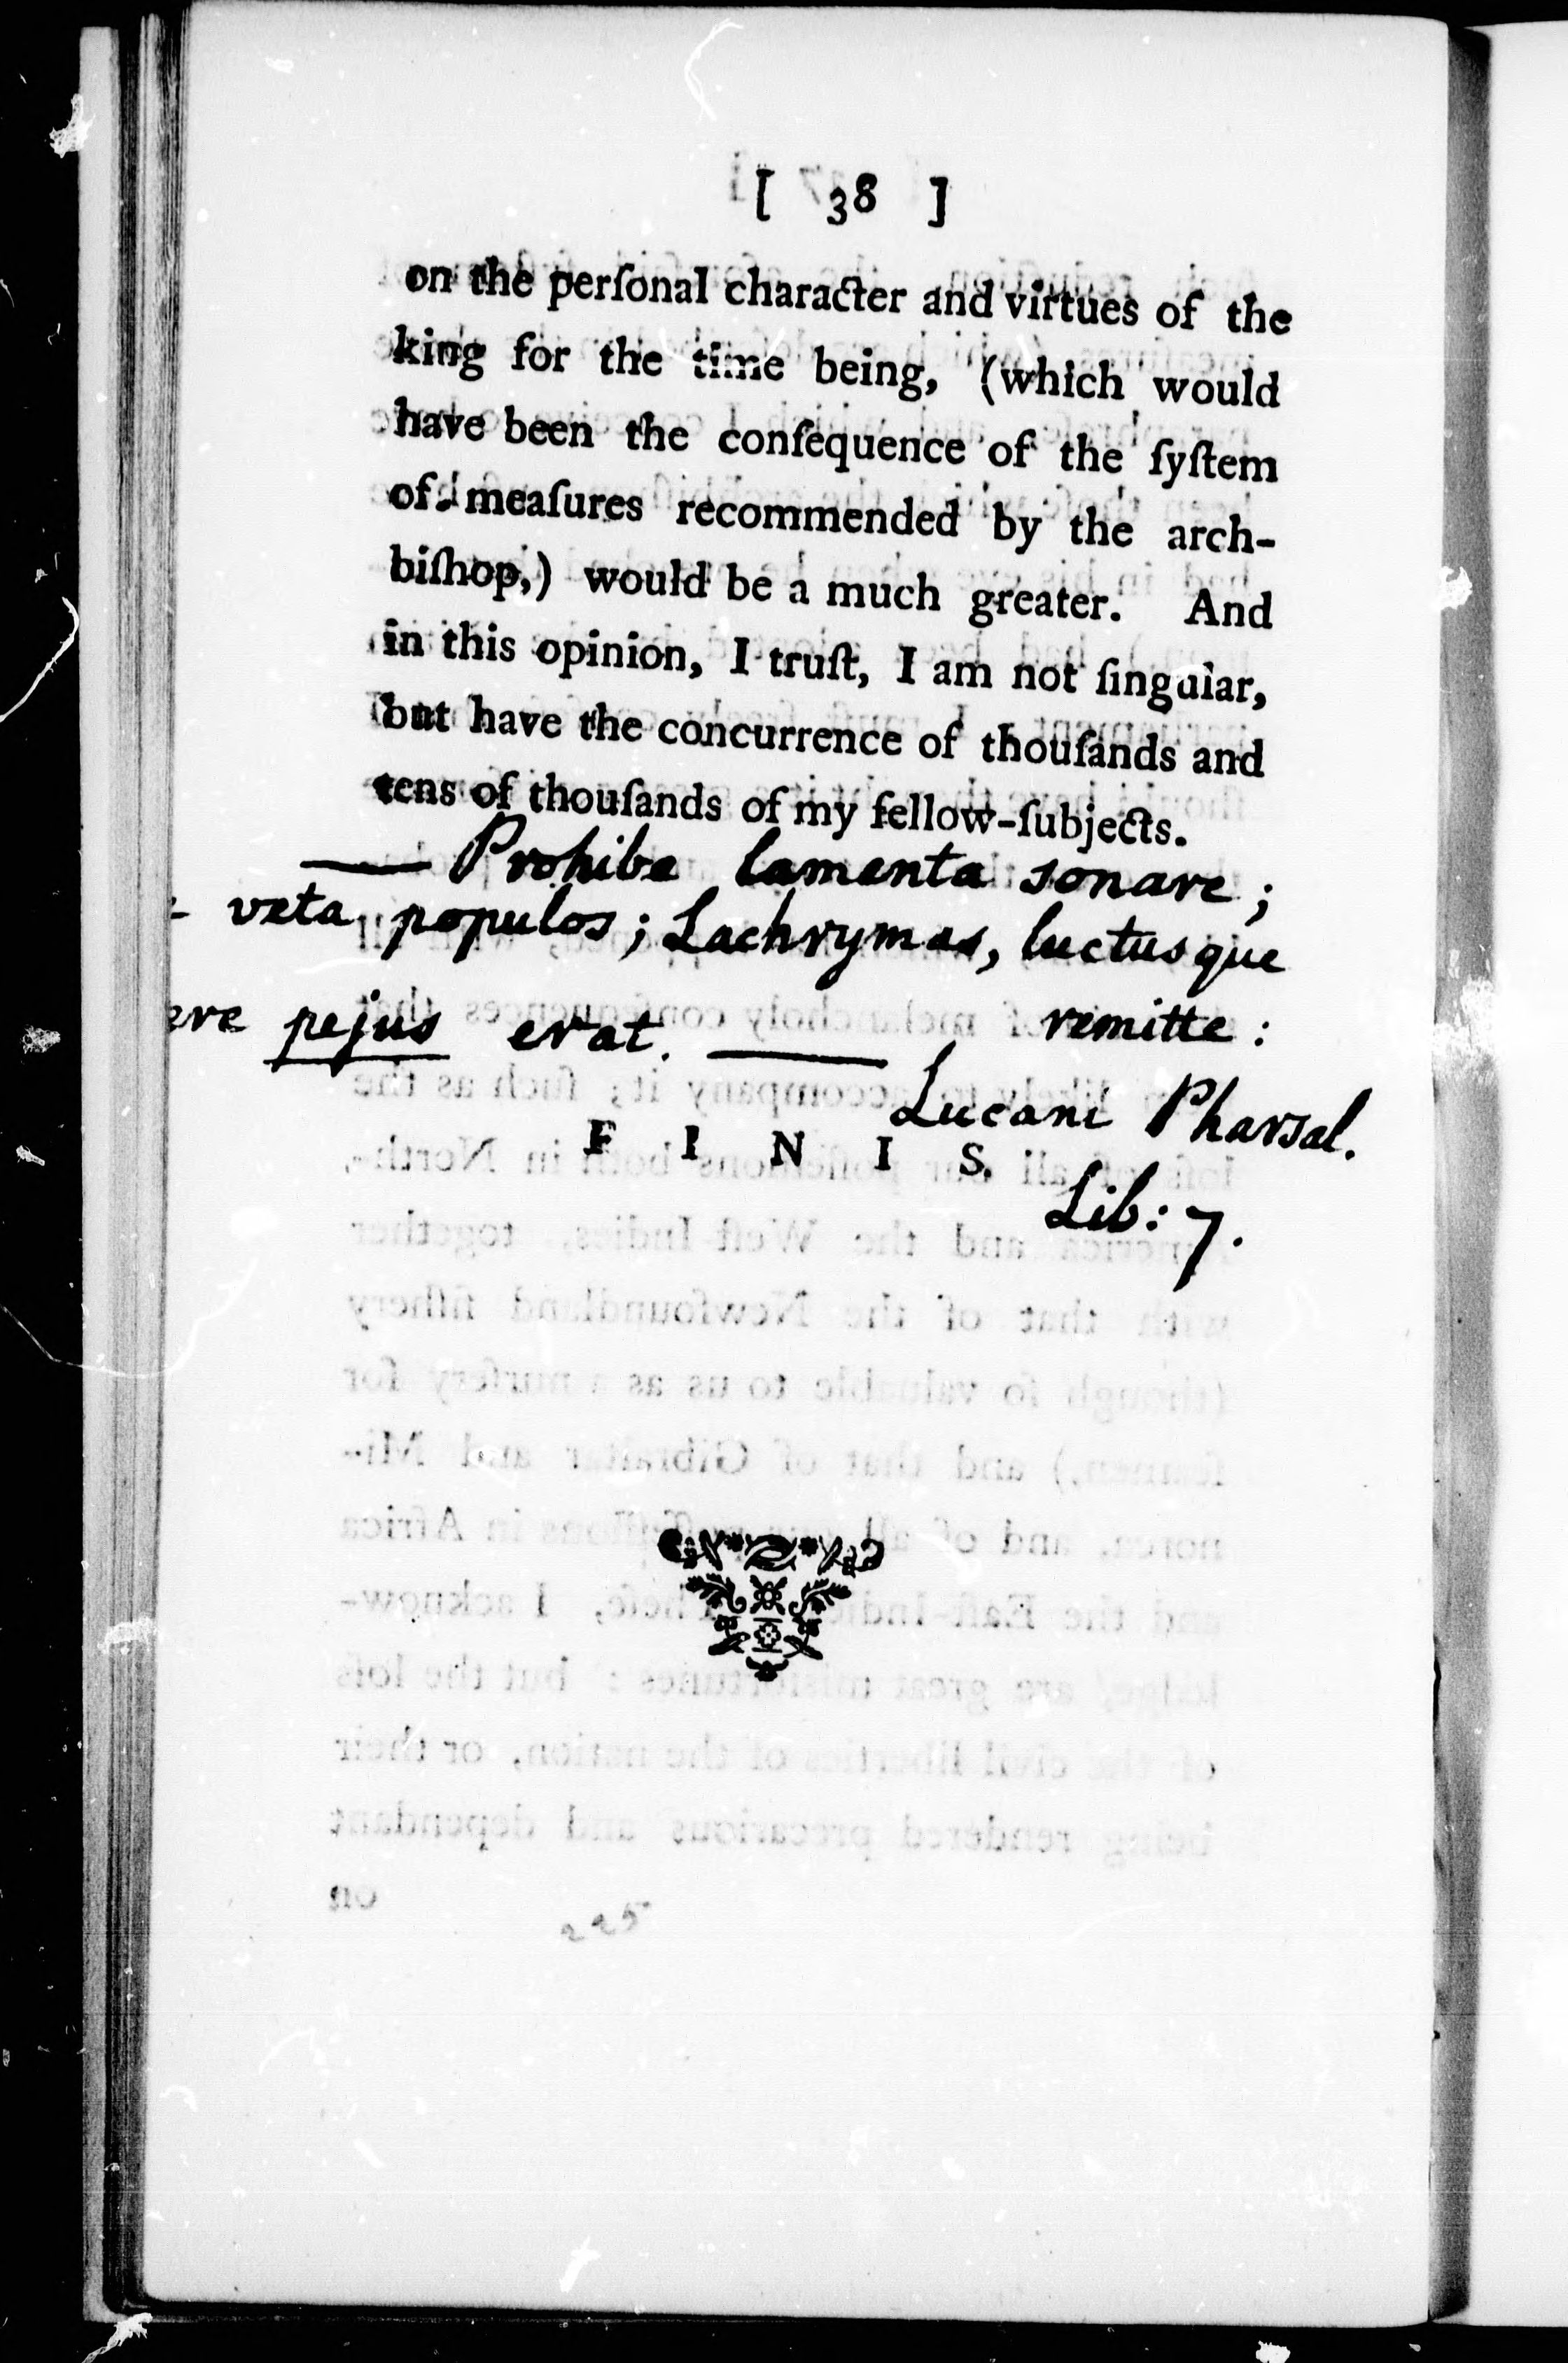 [ 38 ]
on the perſonal character and virtues of the
king for the time being, (which would
have been the conſequence of the ſyſtem
of meaſures recommended by the arch-
biſhop,) would be a much greater. And
in this opinion, I truſt, I am not ſingular,
but have the concurrence of thouſands and
tens of thouſands of my fellow-ſubjects.
— Prohibe lamenta sonare;
veta populos; Lachrymas, luctusque
remitte:
ere pejus erat. —
Lucani Pharsal.
Lib: 7.
F I N I S.